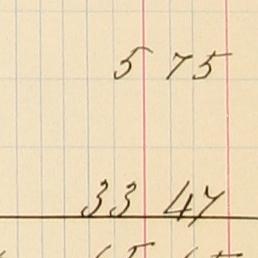 5 75
33 47